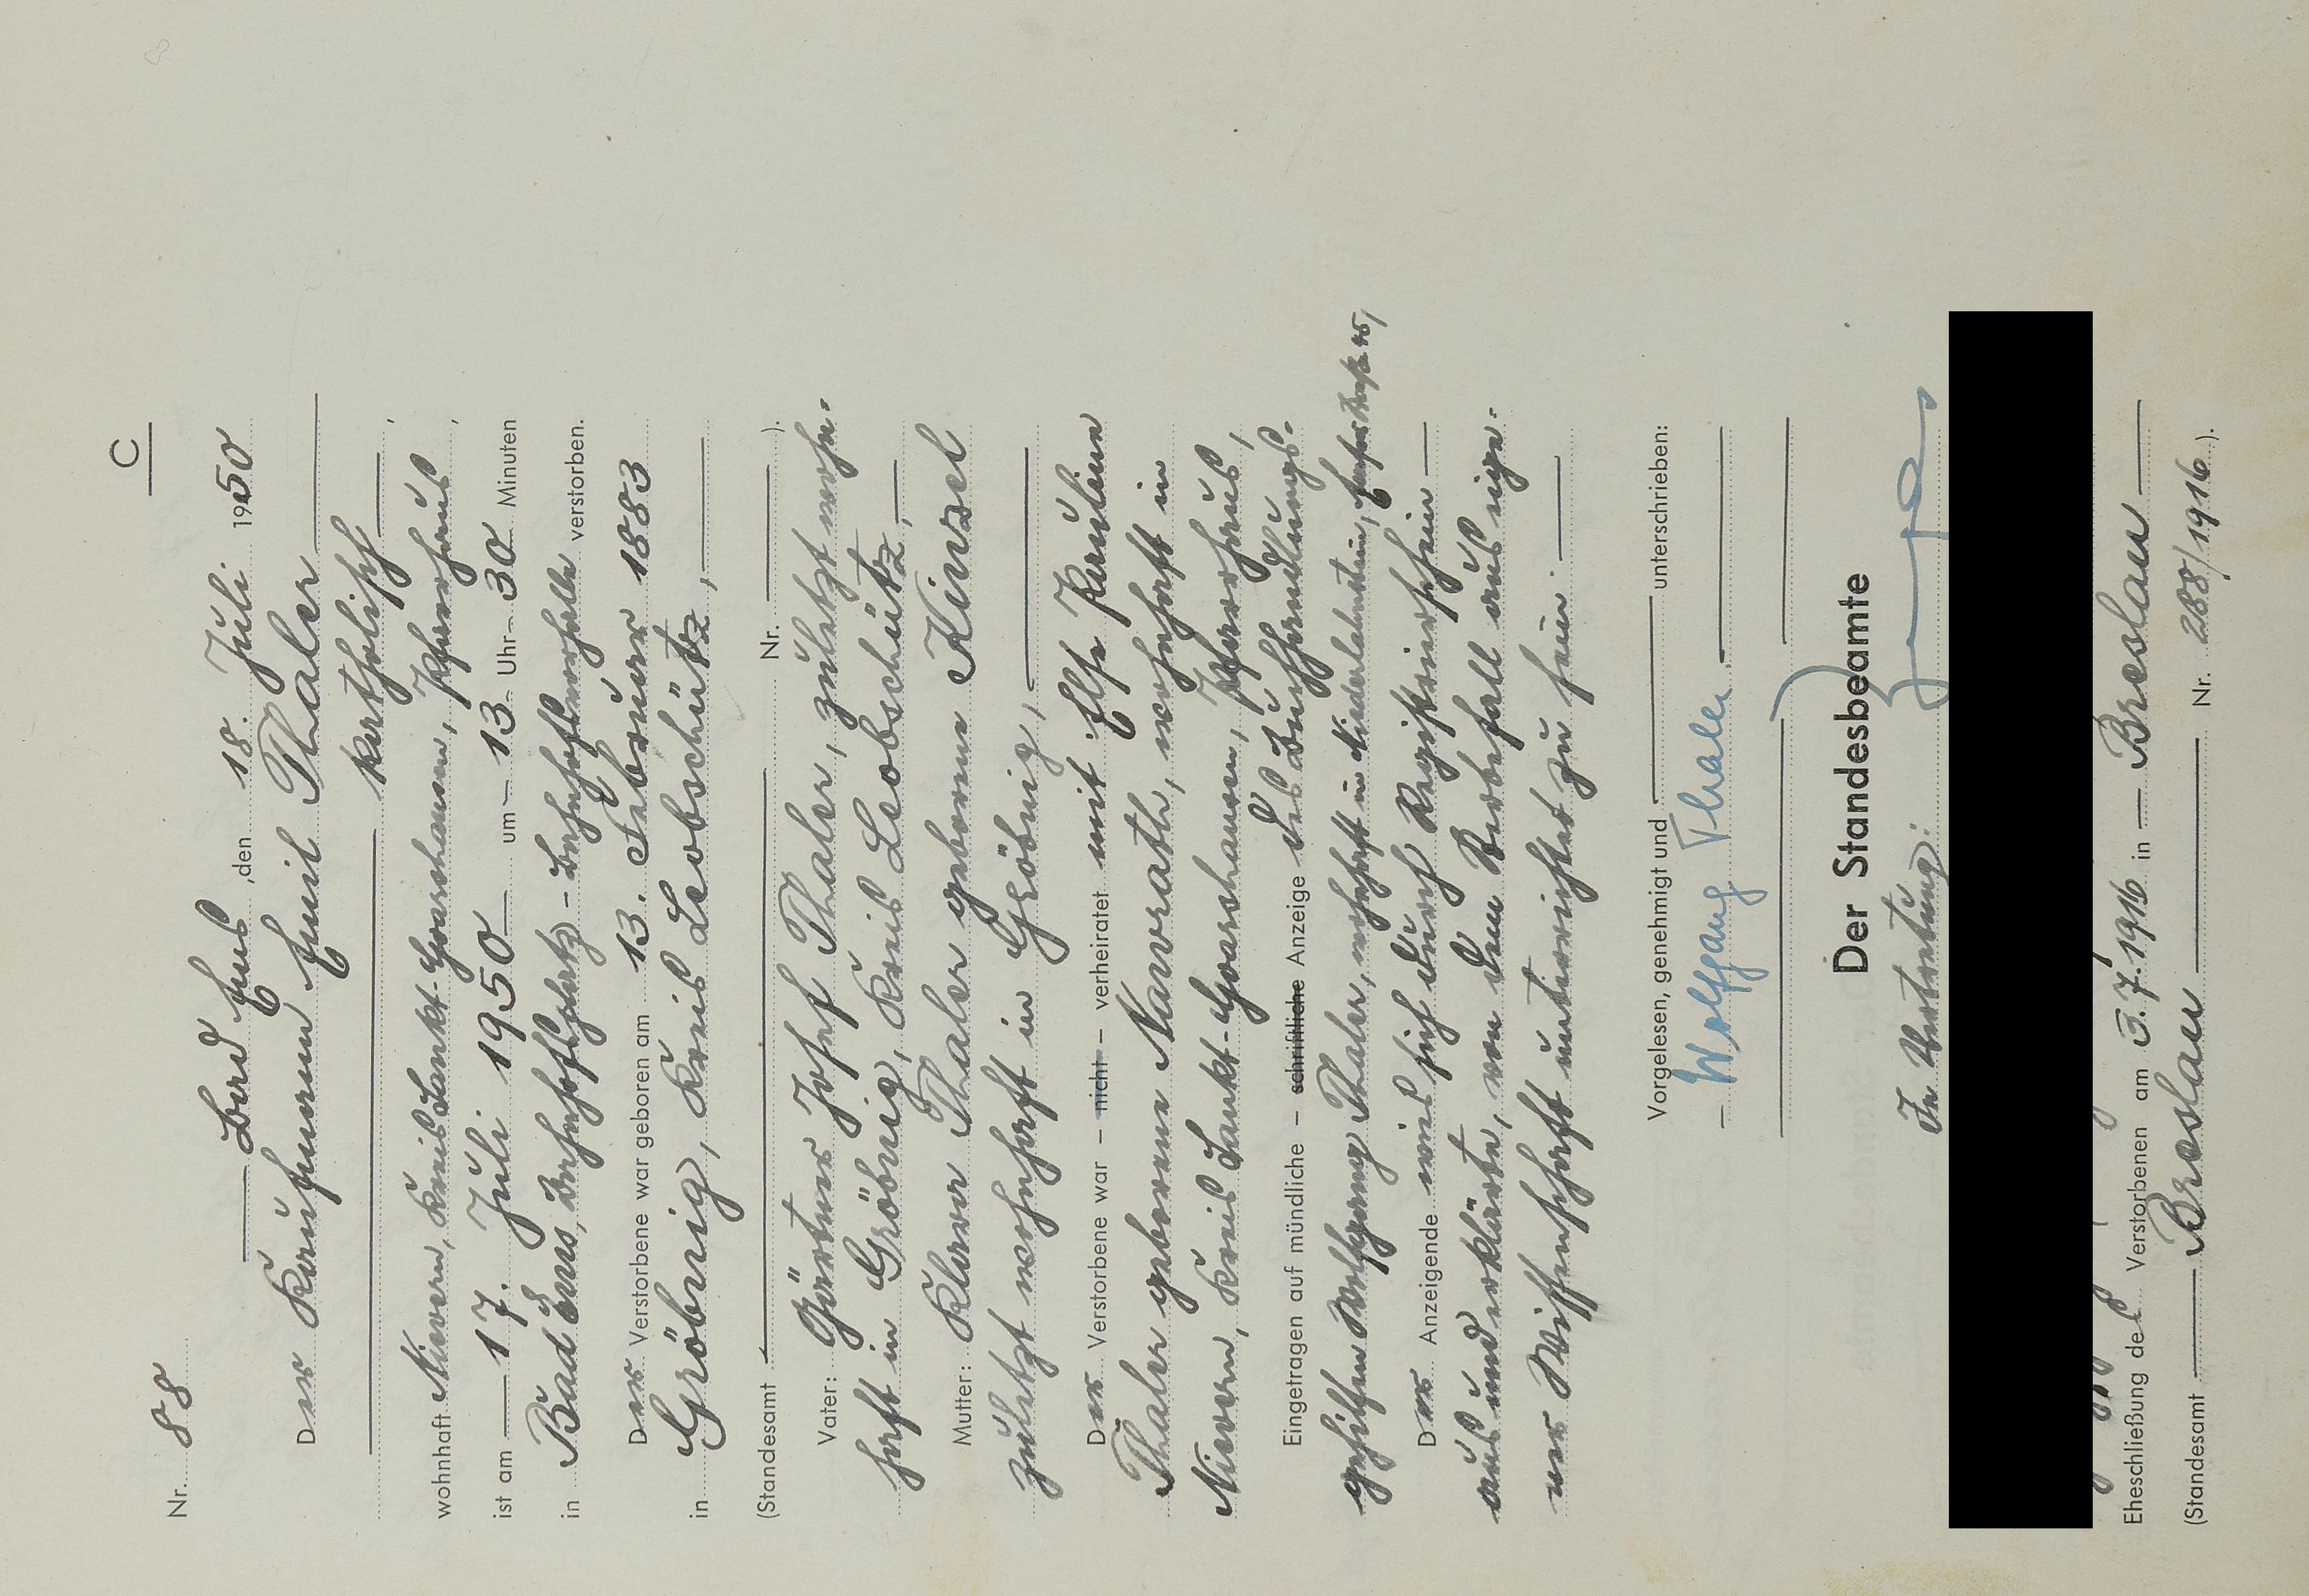 C
Nr. 88
Bad Ems, den 18. Juli 1950
Der Kaufmann Emil Thaler
katholisch,
wohnhaft Nievern, Kreis Sankt-Goarshausen, Pfarrhaus,
ist am 17. Juli 1950 um 13 Uhr 30 Minuten
in Bad Ems, Bahnhofsplatz - Bahnhofsvorhalle verstorben.
Der Verstorbene war geboren am 13. Februar 1883
in Gröbnig, Kreis Leobschütz,
(Standesamt Nr. ).
Vater: Gärtner Josef Thaler, zuletzt wohn-
haft in Gröbnig, Kreis Leobschütz,
Mutter: Klara Thaler geborene Kinzel
zuletzt wohnhaft in Gröbnig,
Der Verstorbene war – nicht – verheiratet mit Else Pauline
Thaler geborene Nawrath, wohnhaft in
Nievern, Kreis Sankt-Goarshausen, Pfarrhaus,
Eingetragen auf mündliche – schriftliche Anzeige des Buchhandlungs-
gehilfen Wolfgang Thaler, wohnhaft in Niederlahnstein,
Der Anzeigende wies sich durch Registrierschein
aus und erklärte, von dem Sterbefall aus eige-
ner Wissenschaft unterrichtet zu sein.
Vorgelesen, genehmigt und unterschrieben:
Wolfgang Thaler
Der Standesbeamte
In Vertretung:
Eheschließung des Verstorbenen am 3.7.1916 in Breslau
(Standesamt Breslau Nr. 288/1916).